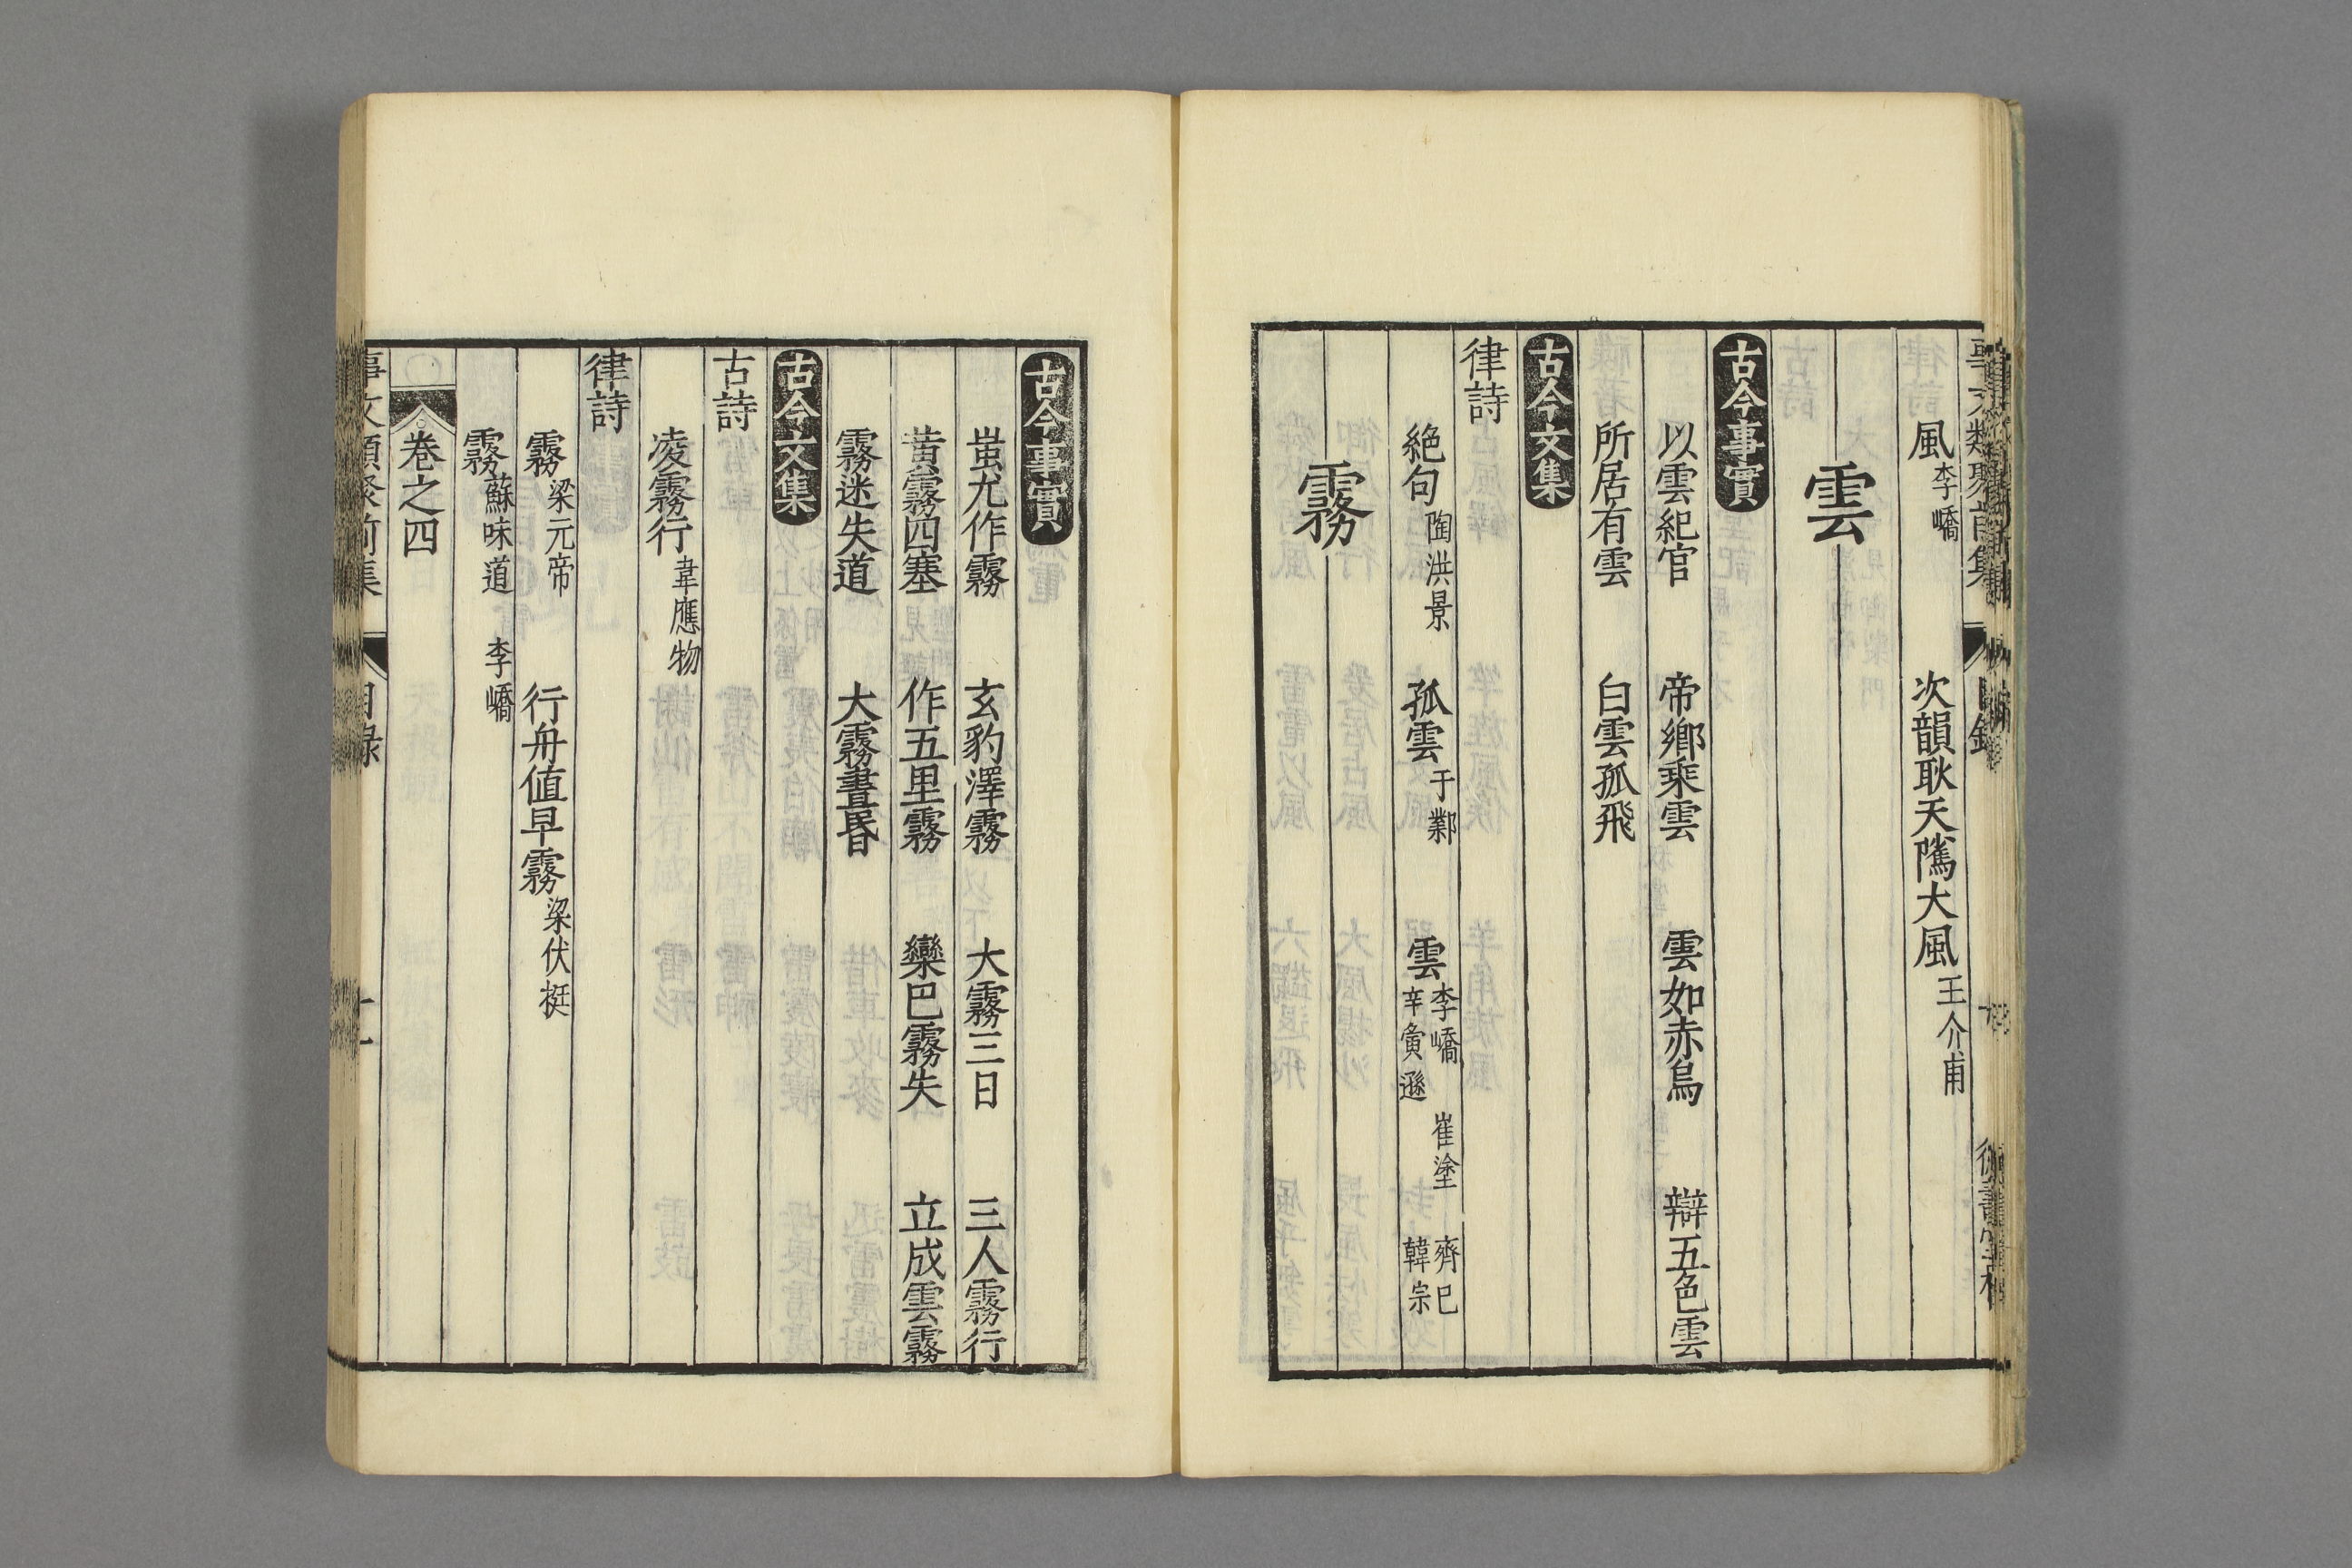 風 李嶠 次韻耿天隲大風 王介甫
雲
古今事實
以雲紀官 帝鄉乘雲 雲如赤烏 辯五色雲
所居有雲 白雲孤飛
古今文集
律詩
絶句 陶洪景 孤雲 于鄴 雲 李嶠 崔塗 齊已 辛寅遜 韓宗
霧
古今事實
蚩尤作霧 玄豹澤霧 大霧三日 三人霧行
黃霧四塞 作五里霧 欒巴霧失 立成雲霧
霧迷失道 大霧晝昬
古今文集
古詩
凌霧行 韋應物
律詩
霧 梁元帝 行舟値早霧 梁伏挺
霧 蘇味道 李嶠
卷之四